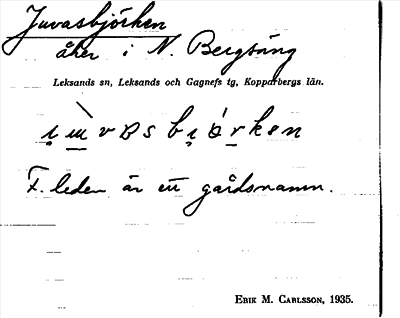 Juvasbjörken
åker i N. Bergsäng
Leksands sn, Leksands och Gagnefs tg, Kopparbergs län.
F. leden är ett gårdsnamn.
ERIK M. CARLSSON, 1935.